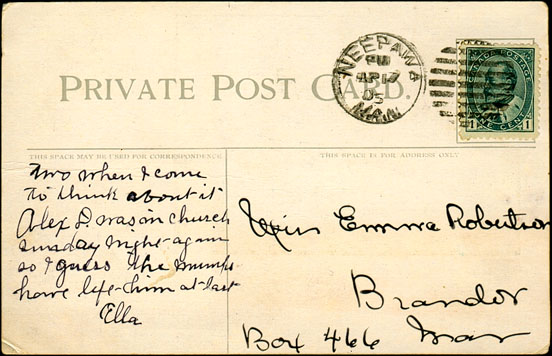 PRIVATE POST CARD.
NEEPAWA
PM
AP 17
05
MAN.
CANADA POSTAGE
1 ONE CENT 1
THIS SPACE MAY BE USED FOR CORRESPONDENCE
THIS SPACE IS FOR ADDRESS ONLY
two when I come
to think about it
Alex L. was in church
sunday night again
so I guess the mumps
have left him at last
Ella
Miss Emma Robertson
Brandon
Box 466 Man